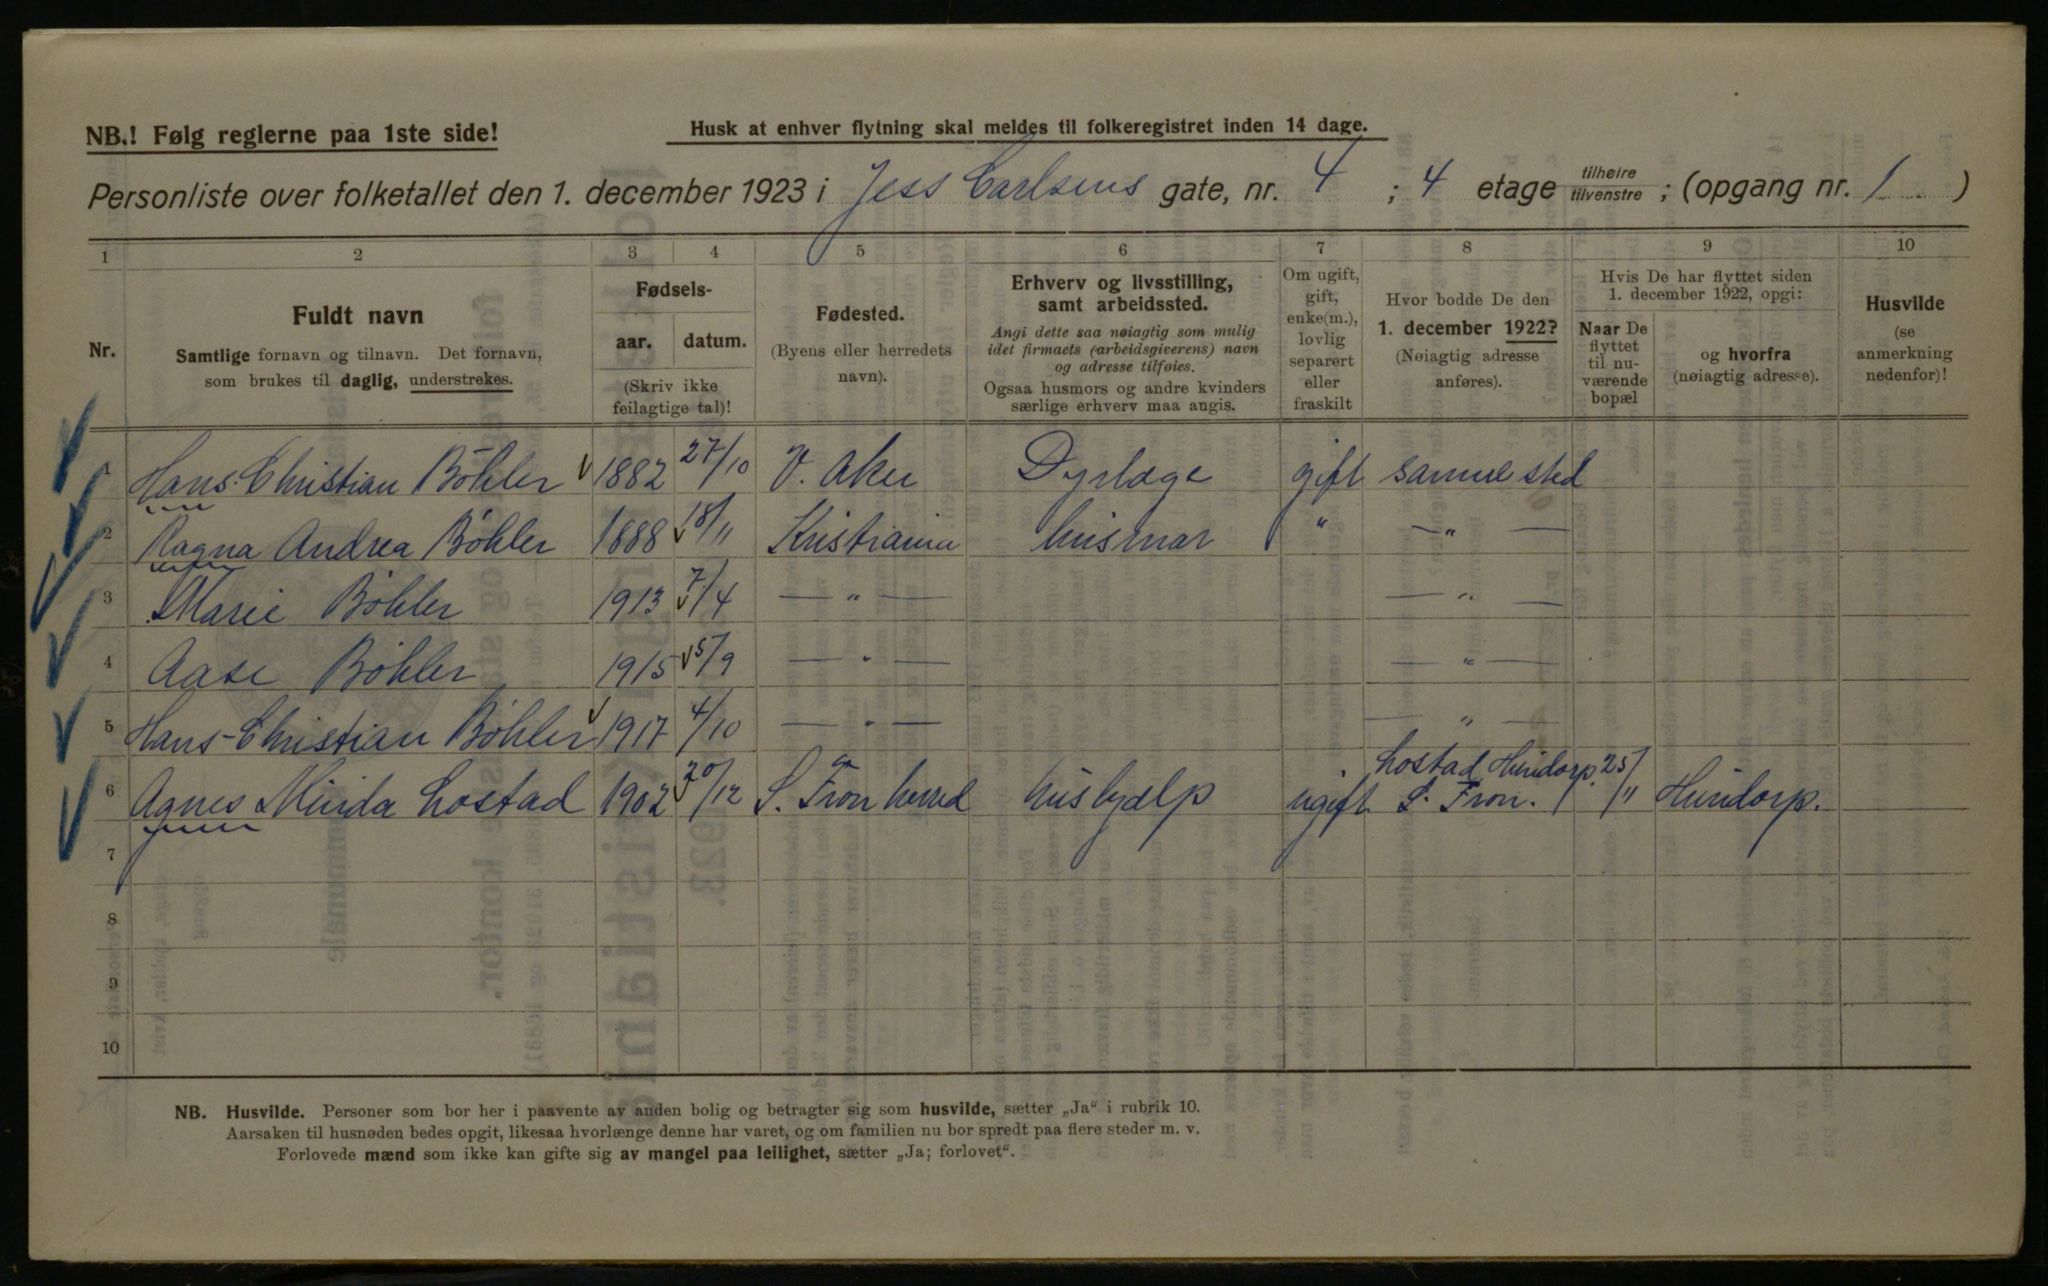 NB.! Følg reglerne paa 1ste side!
Husk at enhver flytning skal meldes til folkeregistret inden 14 dage.
Personliste over folketallet den 1. december 1923 i Jess Carlsens gate, nr. 4 ; 4 etage tilheire tilvenstre ; (opgang nr. 1 )
1 2 3 4 5 6 7 8 9 10
Nr.
Fuldt navn
Samtlige fornavn og tilnavn. Det fornavn,
som brukes til daglig, understrekes.
Fødsels-
aar. datum.
(Skriv ikke
feilagtige tal)!
Fødested.
(Byens eller herredets
navn).
Erhverv og livsstilling,
samt arbeidssted.
Angi dette saa nøiagtig som mulig
idet firmaets (arbeidsgiverens) navn
og adresse tilføies.
Ogsaa husmors og andre kvinders
særlige erhverv maa angis.
Om ugift,
gift,
enke(m.),
lovlig
separert
eller
fraskilt
Hvor bodde De den
1. december 1922?
(Nøiagtig adresse
anføres).
Hvis De har flyttet siden
1. december 1922, opgi:
Naar De
flyttet
til nu-
værende
bopæl
og hvorfra
(nøiagtig adresse).
Husvilde
(se
anmerkning
nedenfor)!
1 Hans Christian Böhler 1882 27/10 V. Aker Dyrlæge gift samme sted
2 Ragna Andrea Böhler 1888 18/11 Kristiania husmor " — " —
3 Marie Böhler 1913 7/4 — " — — " —
4 Aase Böhler 1915 5/9 — " — — " —
5 Hans-Christian Böhler 1917 4/10 — " — — " —
6 Agnes Minda Lostad 1902 20/12 S. Fron herred hushjælp ugift Lostad Hundorp. S. Fron. 25/11 Hundorp.
7
8
9
10
NB. Husvilde. Personer som bor her i paavente av anden bolig og betragter sig som husvilde, sætter „Ja" i rubrik 10.
Aarsaken til husnøden bedes opgit, likesaa hvorlænge denne har varet, og om familien nu bor spredt paa flere steder m. v.
Forlovede mænd som ikke kan gifte sig av mangel paa leilighet, sætter „Ja; forlovet".